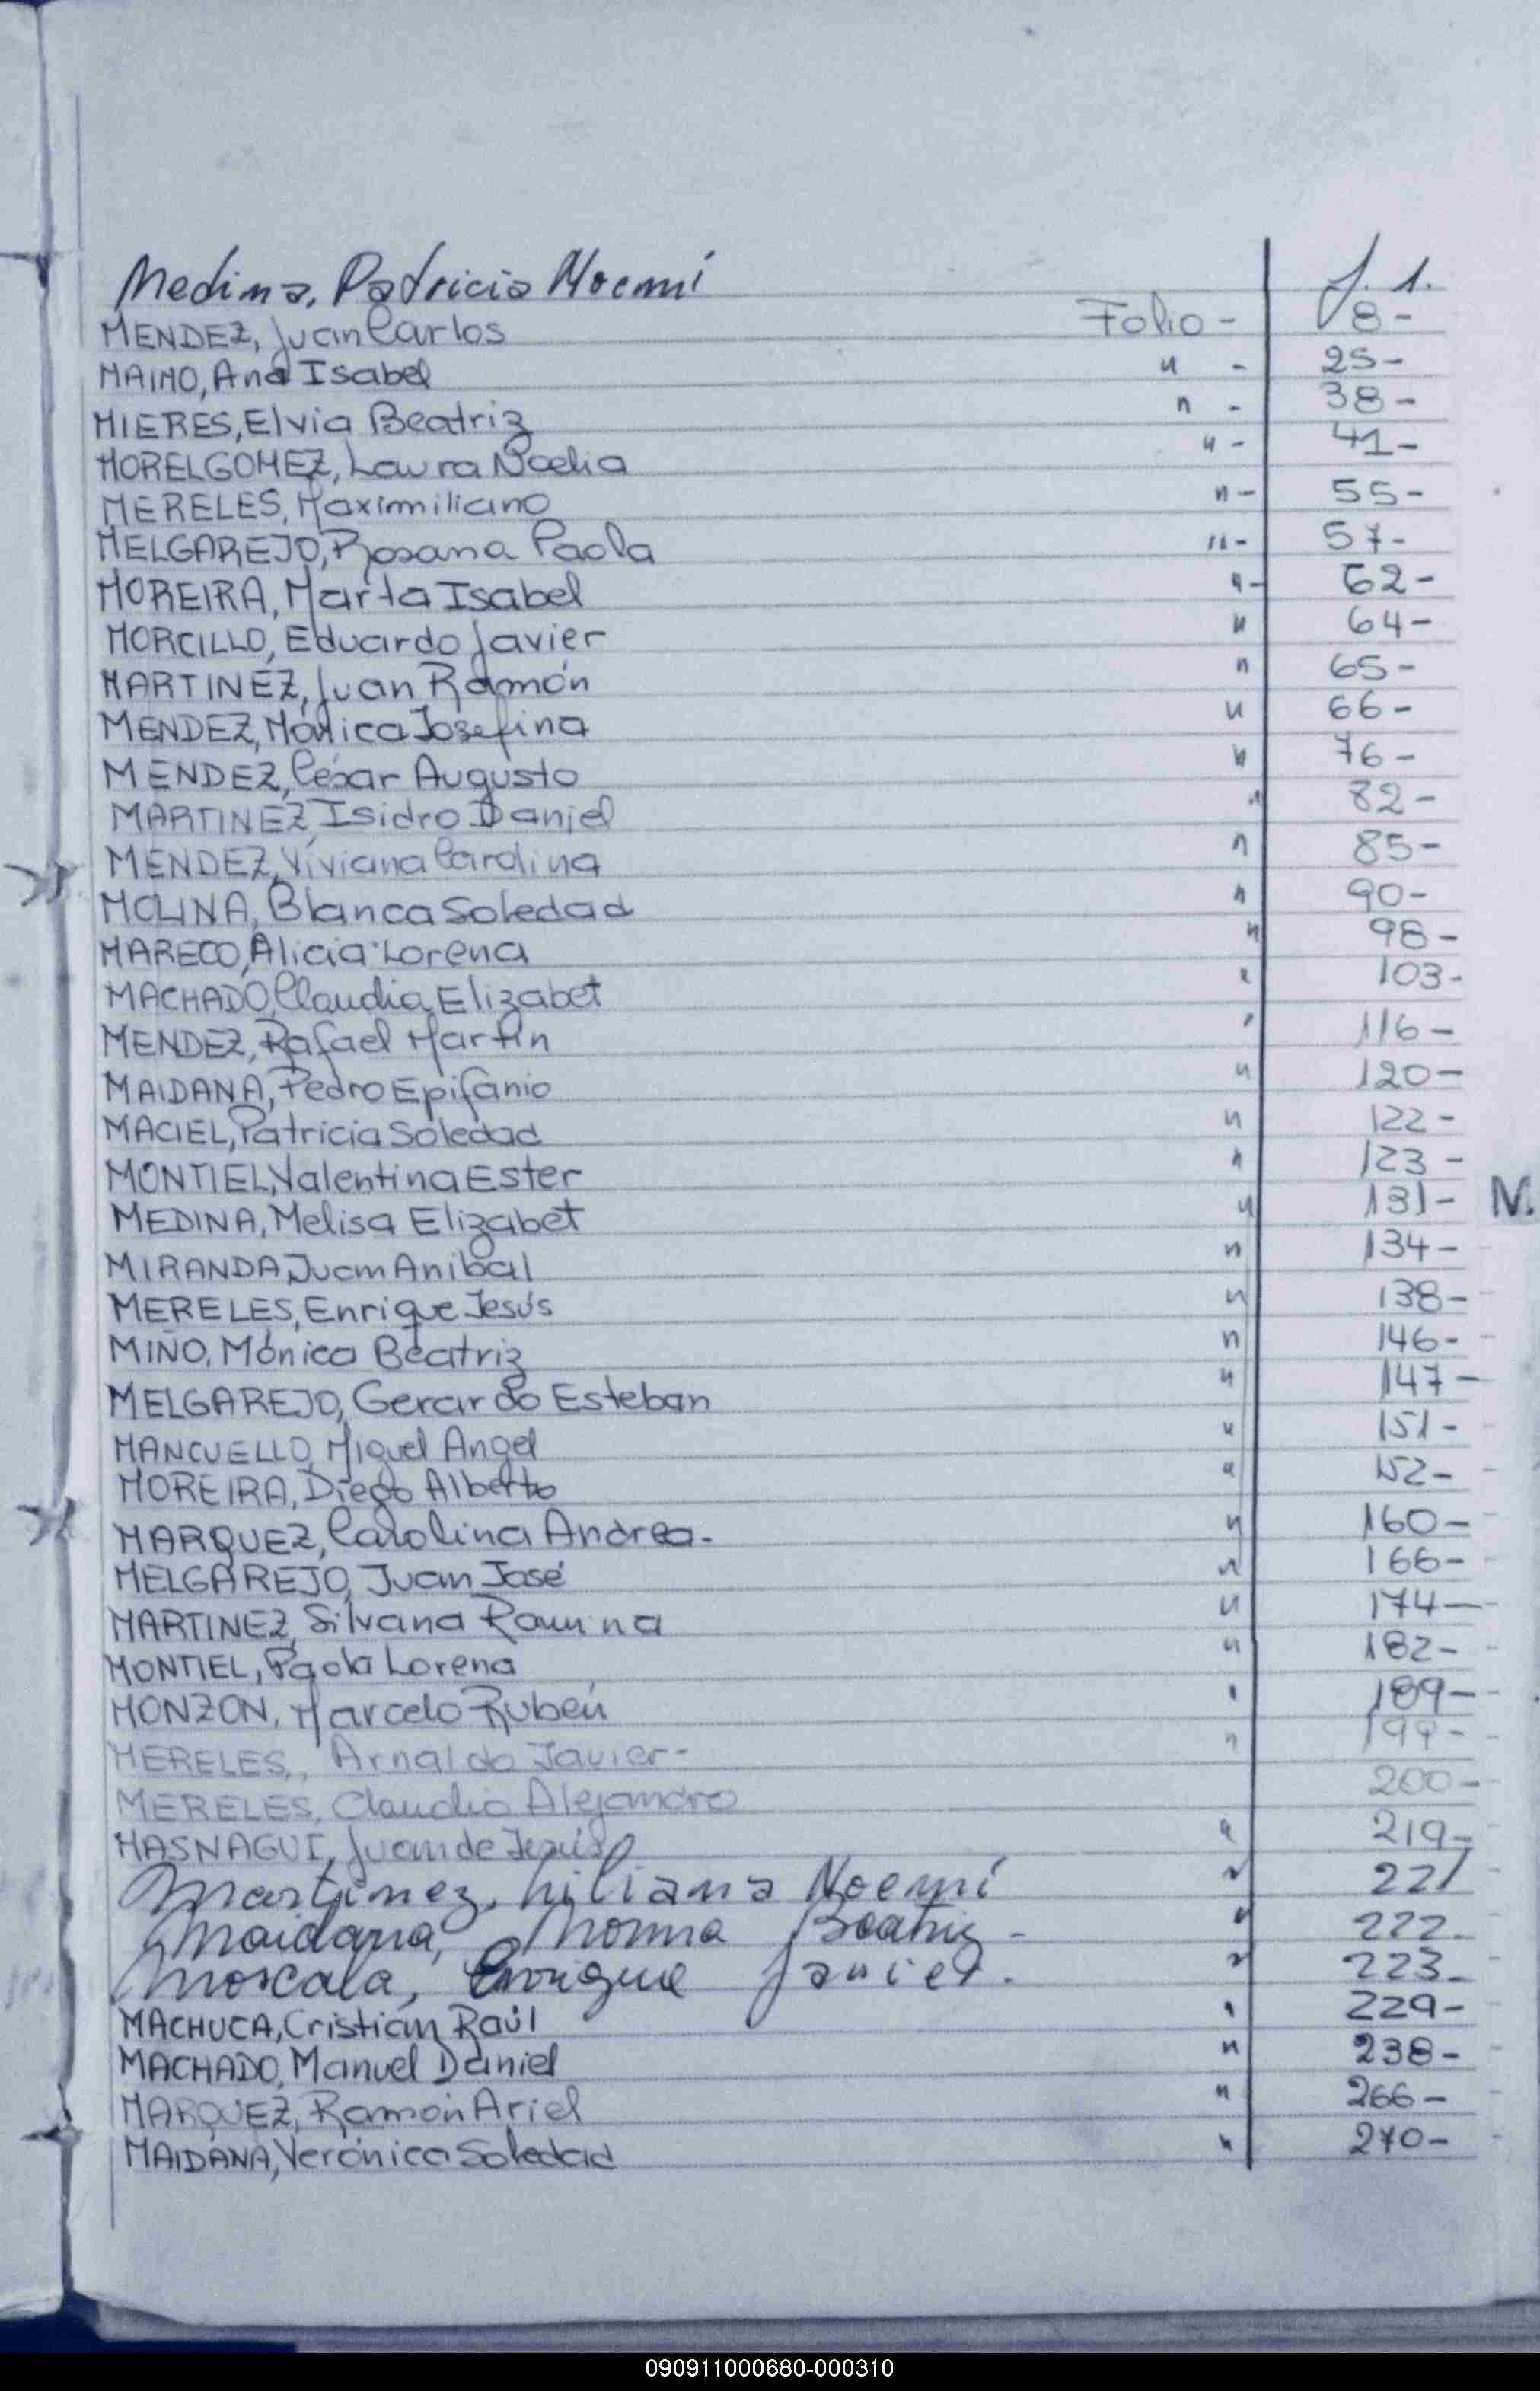 Medina, Patricia Noemí f. 1.
MENDEZ, Juan Carlos Folio - 8-
MAIMO, Ana Isabel " - 25-
MIERES, Elvia Beatriz " - 38-
MOREL GOMEZ, Laura Noelia " - 41-
MERELES, Maximiliano " - 55-
MELGAREJO, Rosana Paola " - 57-
MOREIRA, Marta Isabel " - 62-
MORCILLO, Eduardo Javier " 64-
MARTINEZ, Juan Ramón " 65-
MENDEZ, Mónica Josefina " 66-
MENDEZ, César Augusto " 76-
MARTINEZ, Isidro Daniel " 82-
MENDEZ, Viviana Carolina " 85-
MOLINA, Blanca Soledad " 90-
MARECO, Alicia Lorena " 98-
MACHADO, Claudia Elizabet " 103-
MENDEZ, Rafael Martín " 116-
MAIDANA, Pedro Epifanio " 120-
MACIEL, Patricia Soledad " 122-
MONTIEL, Valentina Ester " 123-
MEDINA, Melisa Elizabet " 131- M.
MIRANDA, Juan Anibal " 134-
MERELES, Enrique Jesús " 138-
MIÑO, Mónica Beatriz " 146-
MELGAREJO, Gerardo Esteban " 147-
MANCUELLO, Miguel Angel " 151-
MOREIRA, Diego Alberto " 152-
MARQUEZ, Carolina Andrea- " 160-
MELGAREJO, Juan José " 166-
MARTINEZ, Silvana Romina " 174-
MONTIEL, Paola Lorena " 182-
MONZON, Marcelo Rubén " 189-
MERELES, Arnaldo Javier- " 199-
MERELES, Claudio Alejandro 200-
MASNAGUI, Juan de Jesús " 219-
Martínez, Liliana Noemí " 221
Maidana, Norma Beatriz - " 222-
Moscala, Enrique Javier. " 223-
MACHUCA, Cristian Raúl " 229-
MACHADO, Manuel Daniel " 238-
MARQUEZ, Ramón Ariel " 266-
MAIDANA, Verónica Soledad " 270-
090911000680-000310